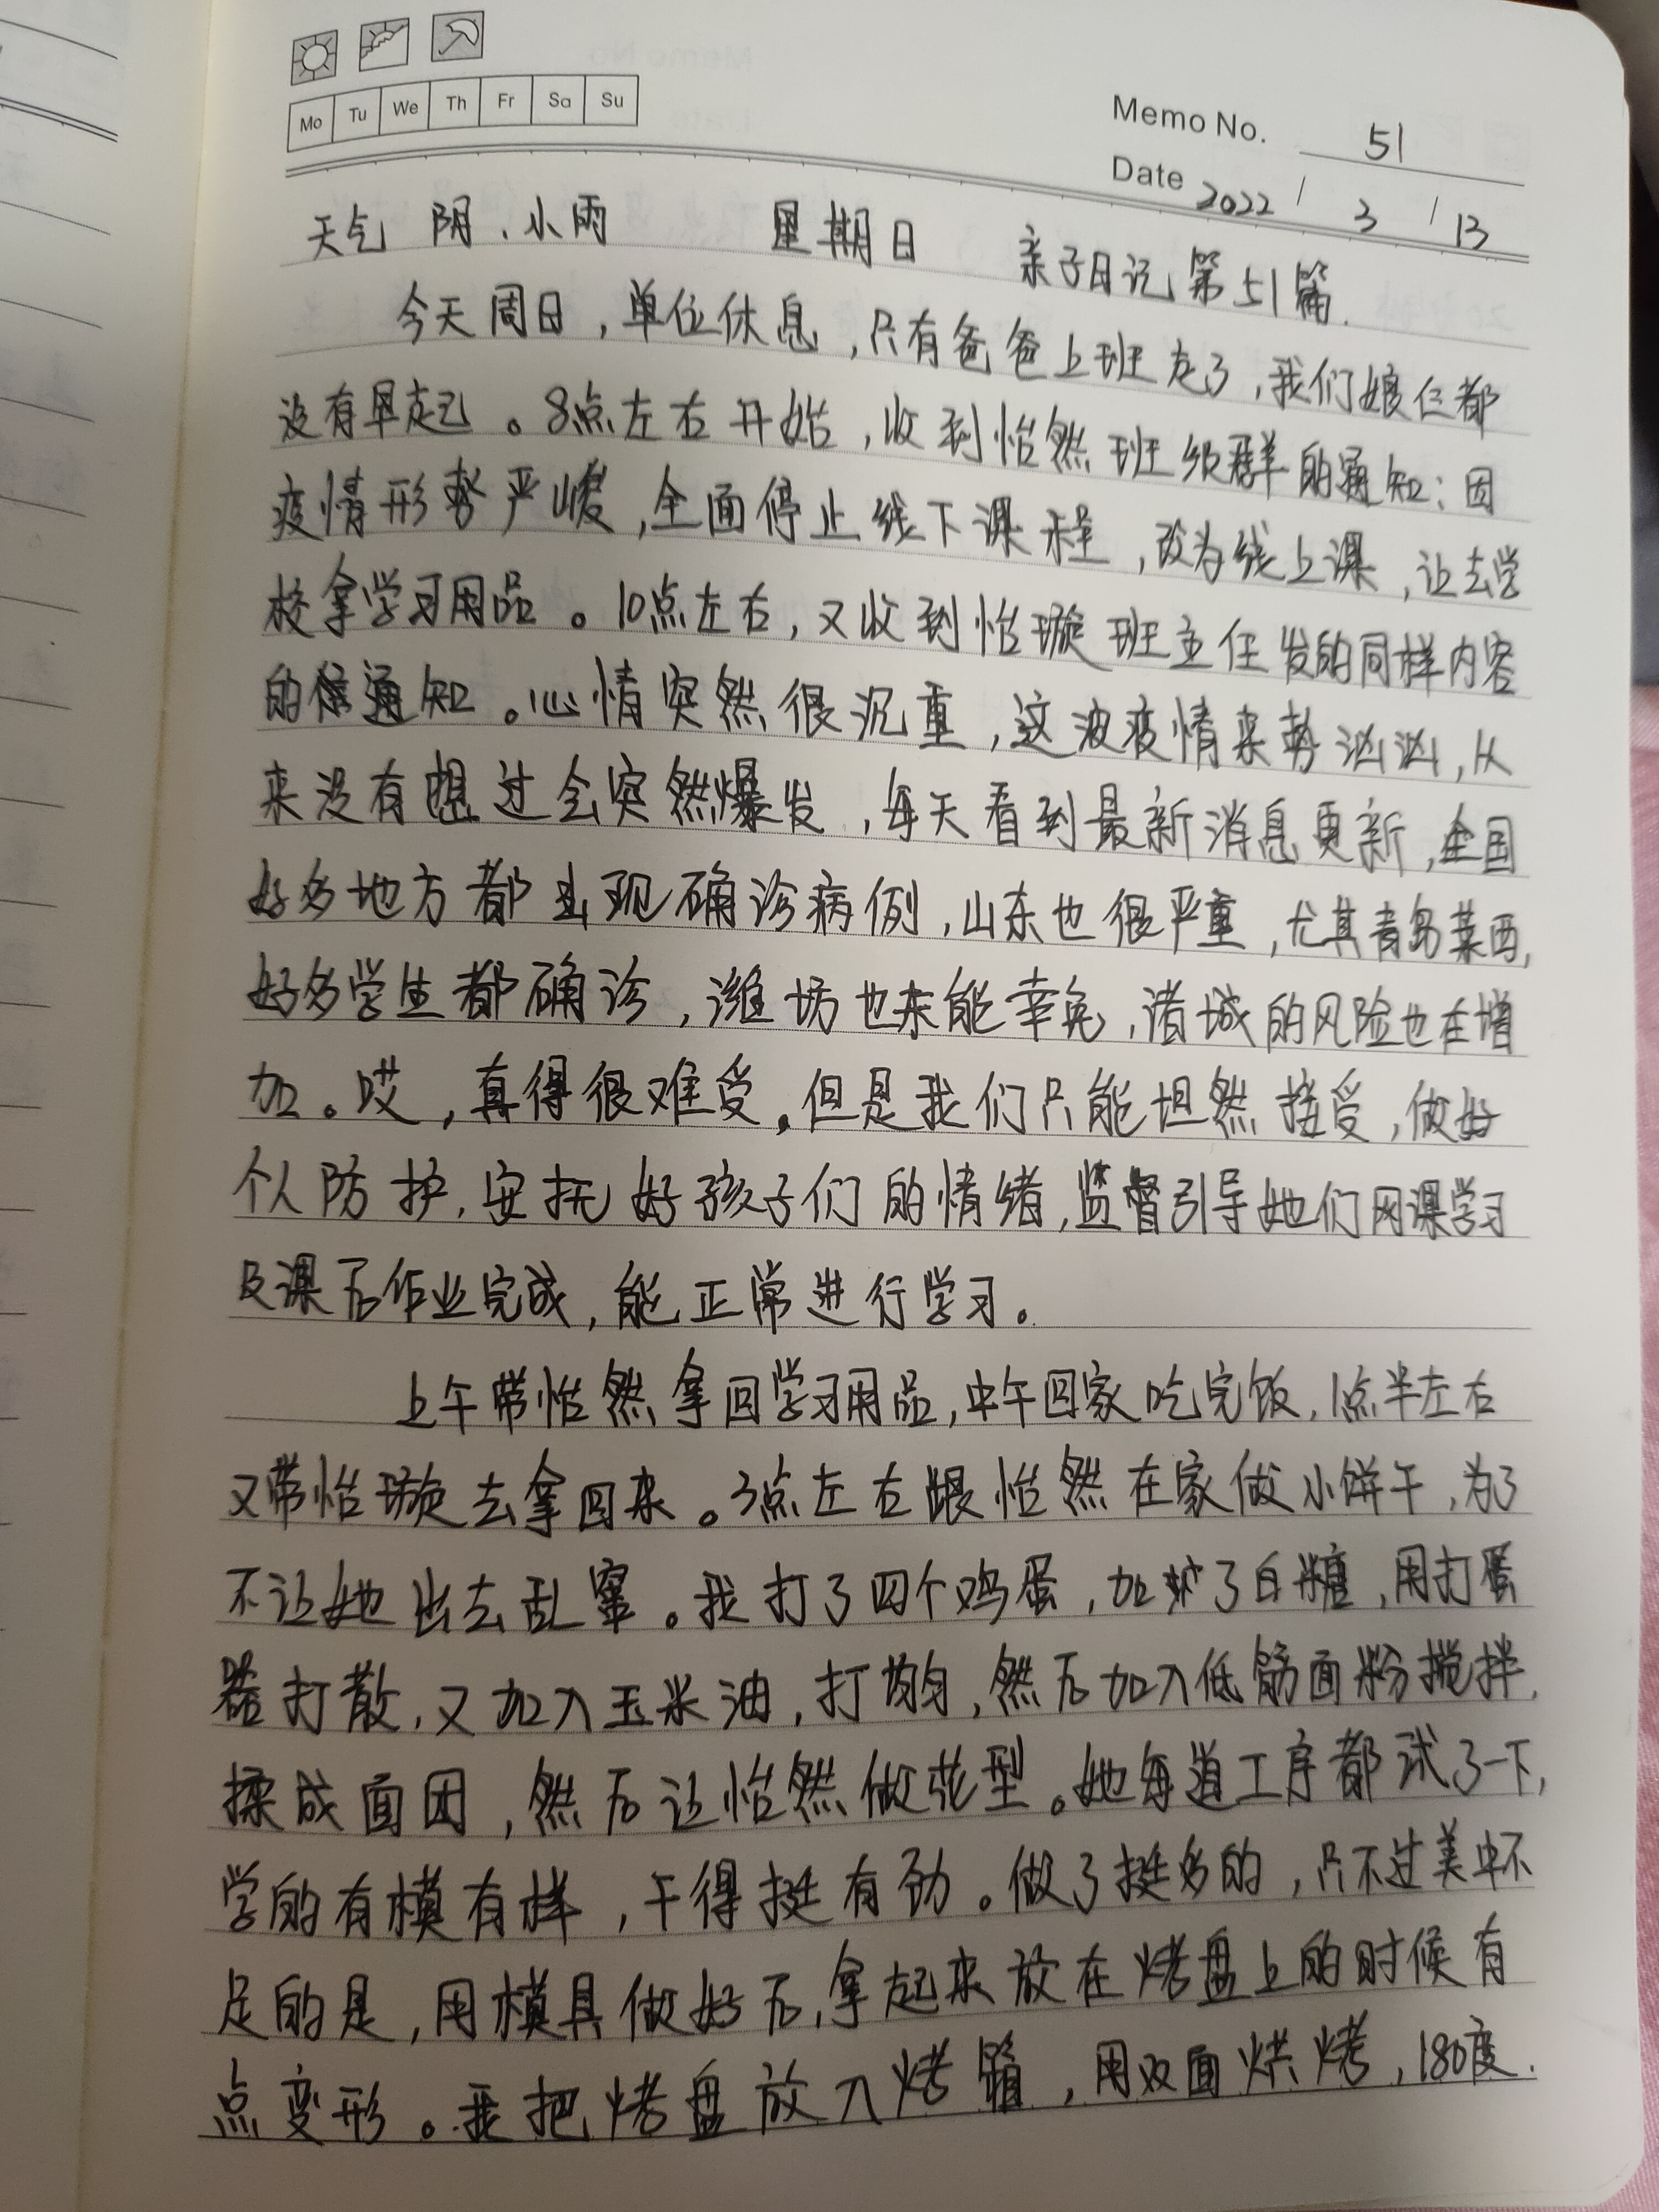 Mo Tu We Th Fr Sa Su
Memo No. 51
Date 2022 / 3 / 13
天气 阴、小雨 星期日 亲子日记第51篇.
今天周日，单位休息，只有爸爸上班走了，我们娘仨都
没有早起。8点左右开始，收到怡然班级群的通知：因
疫情形势严峻，全面停止线下课程，改为线上课，让去学
校拿学习用品。10点左右，又收到怡璇班主任发的同样内容
的通知。心情突然很沉重，这波疫情来势汹汹，从
来没有想过会突然爆发，每天看到最新消息更新，全国
好多地方都出现确诊病例，山东也很严重，尤其青岛莱西，
好多学生都确诊，潍坊也未能幸免，诸城的风险也在增
加。哎，真得很难受。但是我们只能坦然接受，做好
个人防护，安抚好孩子们的情绪，监督引导她们网课学习
及课后作业完成，能正常进行学习。
上午带怡然拿回学习用品，中午回家吃完饭，1点半左右
又带怡璇去拿回来。3点左右跟怡然在家做小饼干，为了
不让她出去乱窜。我打了四个鸡蛋，加了白糖，用打蛋
器打散，又加入玉米油，打均匀，然后加入低筋面粉搅拌，
揉成面团，然后让怡然做花型。她每道工序都试了一下，
学的有模有样，干得挺有劲。做了挺多的，只不过美中不
足的是，用模具做好后，拿起来放在烤盘上的时候有
点变形。我把烤盘放入烤箱，用双面烘烤，180度.